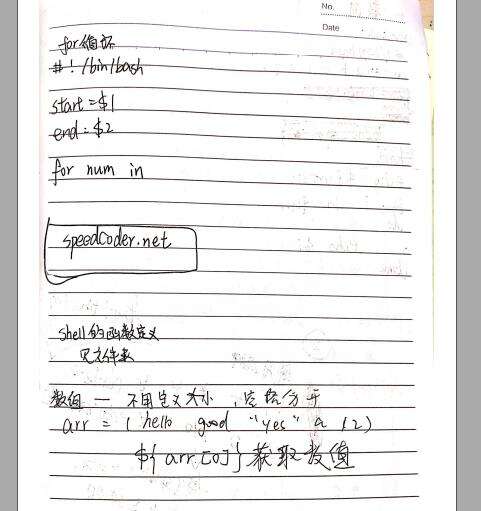 No.
Date
for循环
#!/bin/bash
start=$1
end=$2
for num in
speedcoder.net
shell的函数定义
见文件夹
数组 — 不用定义大小,空格分开
arr = ( hello good "yes" a 12)
${arr[0]}获取数值